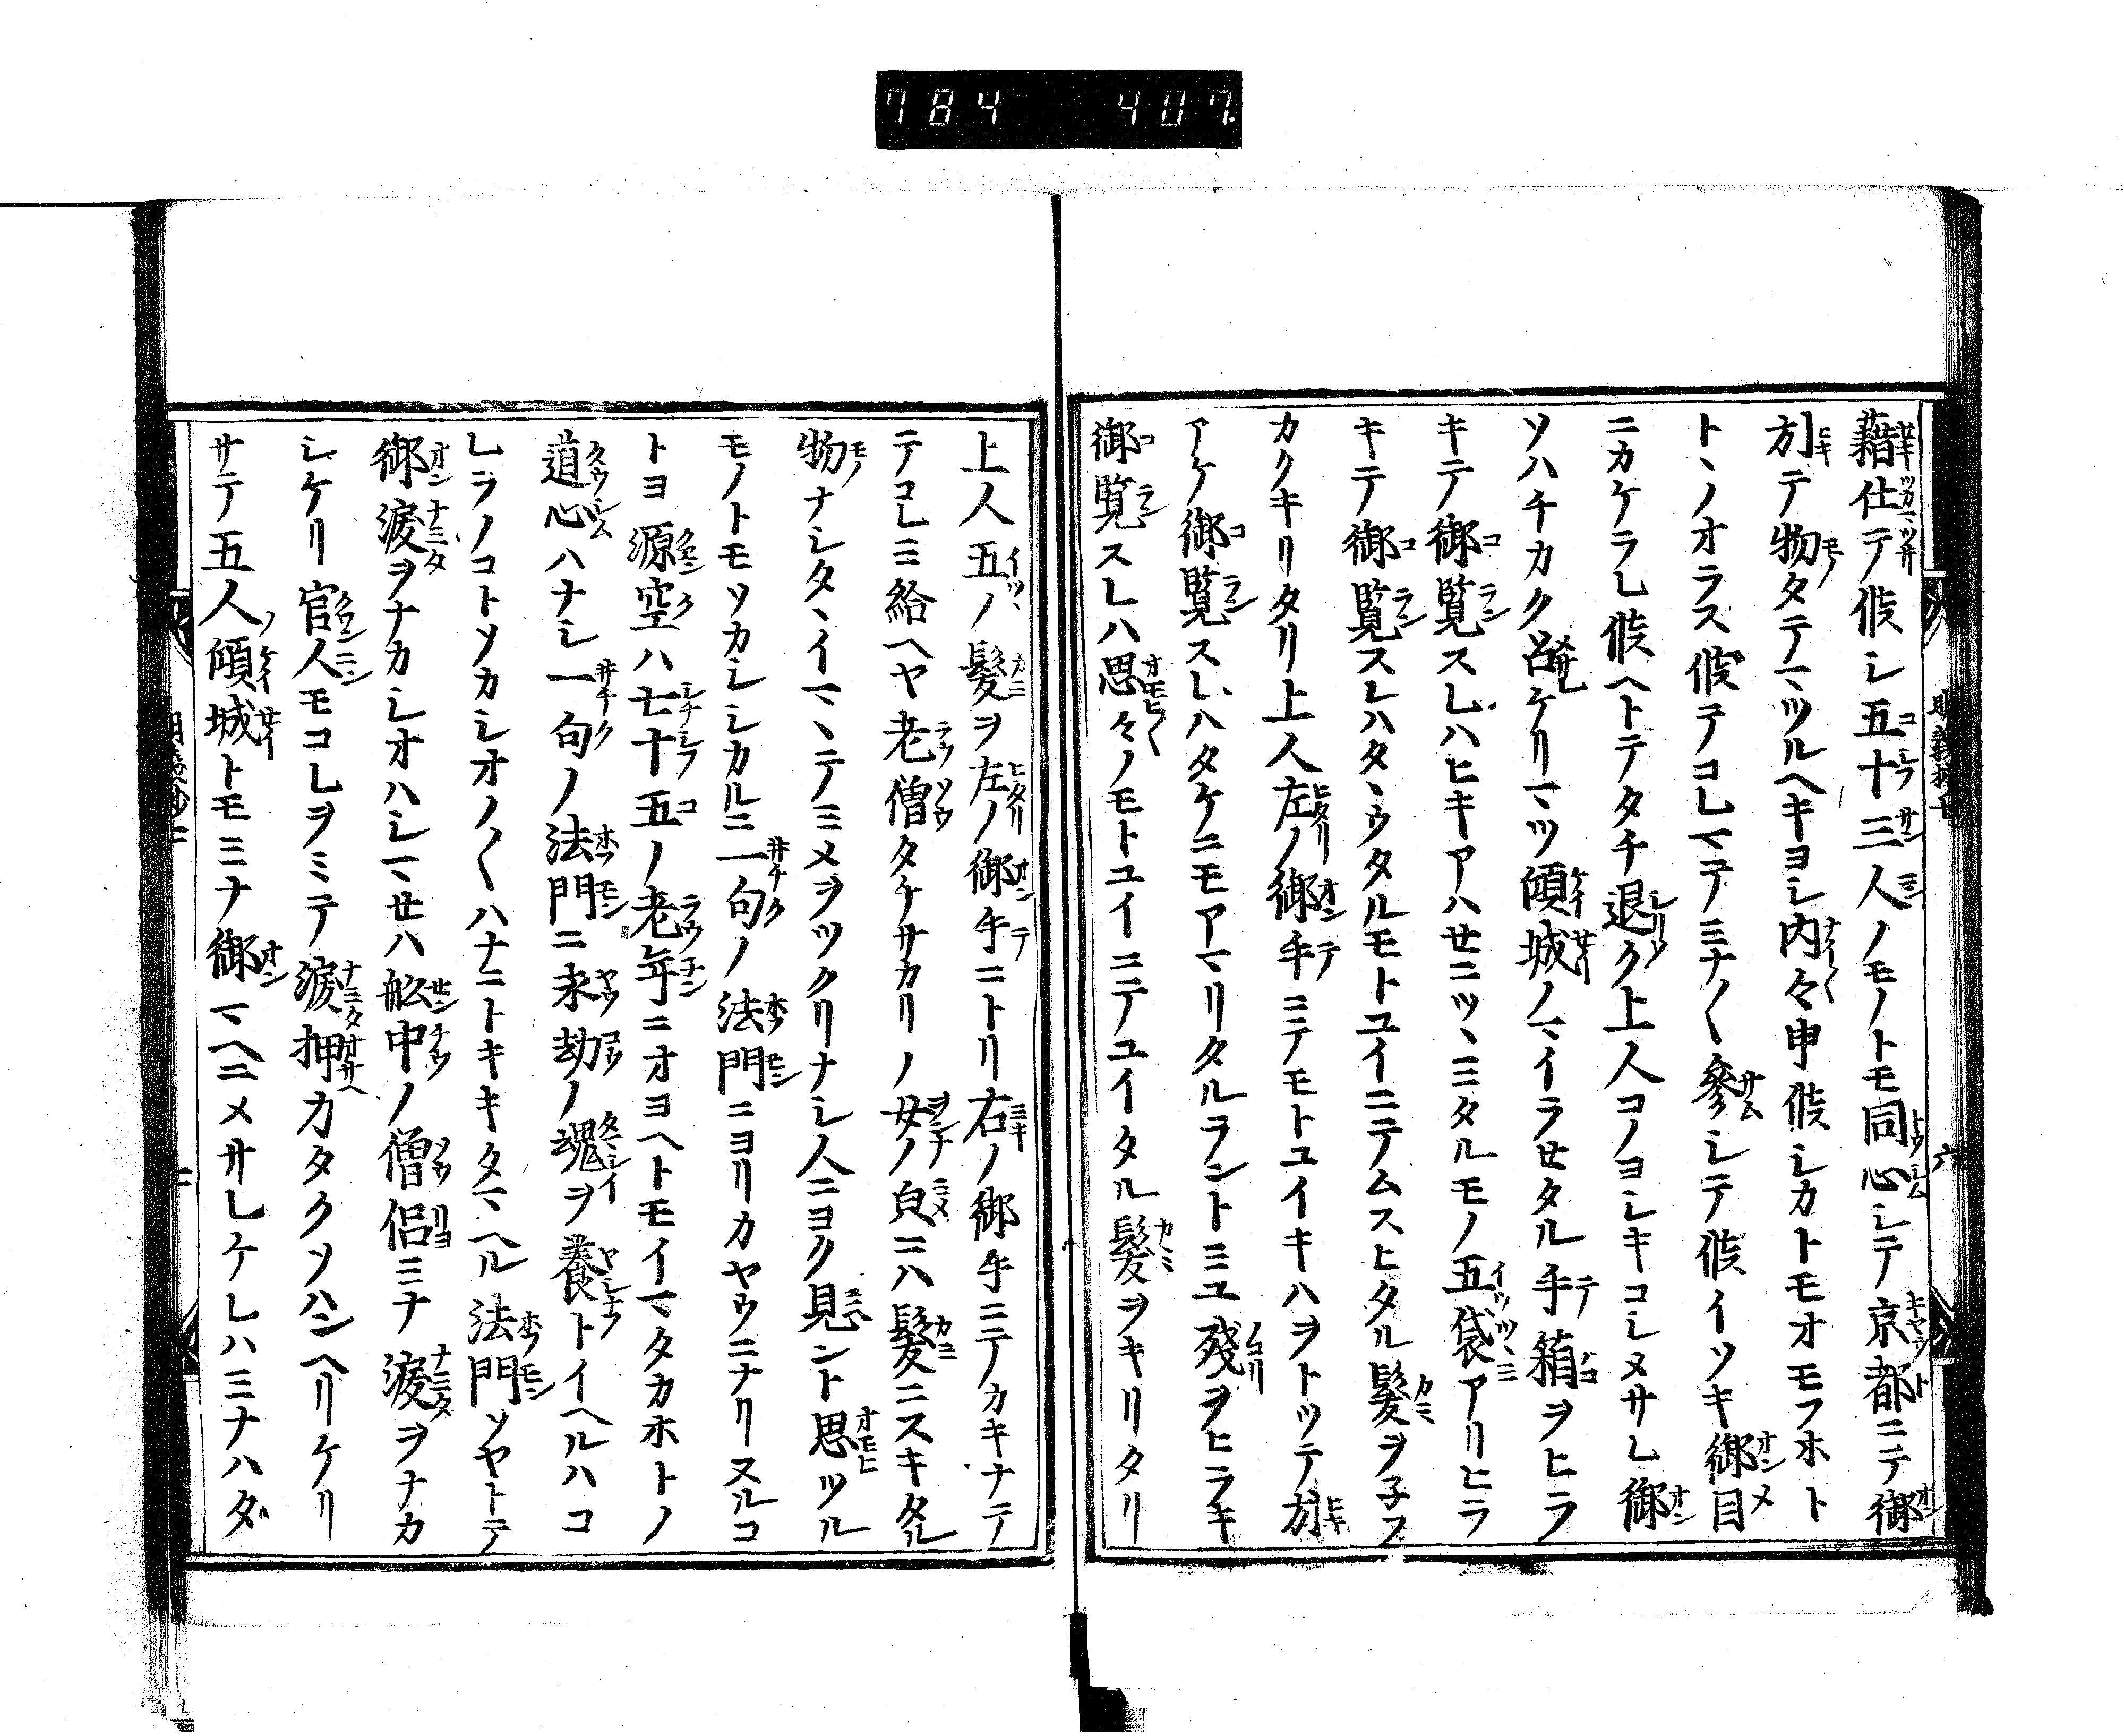 784 407.
藉仕テ候シ五十三人ノモノトモ同心シテ京都ニテ御
引テ物タテマツルヘキヨシ内々申候シカトモオモフホト
トヽノオラス候テコレマテミナ〱參シテ候イツキ御目
ニカケラレ候ヘトテタチ退ク上人コノヨシキコシメサレ御
ソハチカク召ケリマツ傾城ノマイラセタル手箱ヲヒラ
キテ御覽スレハヒキアハセニツヽミタルモノ五袋アリヒラ
キテ御覽スレハタヽウタルモトユイニテムスヒタル髮ヲ子フ
カクキリタリ上人左ノ御手ミテモトユイキハヲトツテ引
アケ御覽スレハタケニモアマリタルラントミユ殘ヲヒラキ
御覽スレハ思々ノモトユイニテユイタル髮ヲキリタリ
上人五ノ髮ヲ左ノ御手ニトリ右ノ御手ニテカキナテ
テコレミ給ヘヤ老僧タチサカリノ女ノ身ニハ髮ニスキタル
物ナシタヽイマヽテミメヲツクリナシ人ニヨク見ント思ツル
モノトモソカシシカルニ一句ノ法門ニヨリカヤウニナリヌルコ
トヨ源空ハ七十五ノ老年ニオヨヘトモイマタカホトノ
道心ハナシ一句ノ法門ニ永劫ノ魂ヲ養トイヘルハコ
レラノコトソカシオノ〱ハナニトキキタマヘル法門ソヤトテ
御淚ヲナカシオハシマセハ舩中ノ僧侶ミナ淚ヲナカ
シケリ官人モコレヲミテ淚押カタクソハンヘリケリ
サテ五人ノ傾城トモミナ御マヘニメサレケレハミナハダ